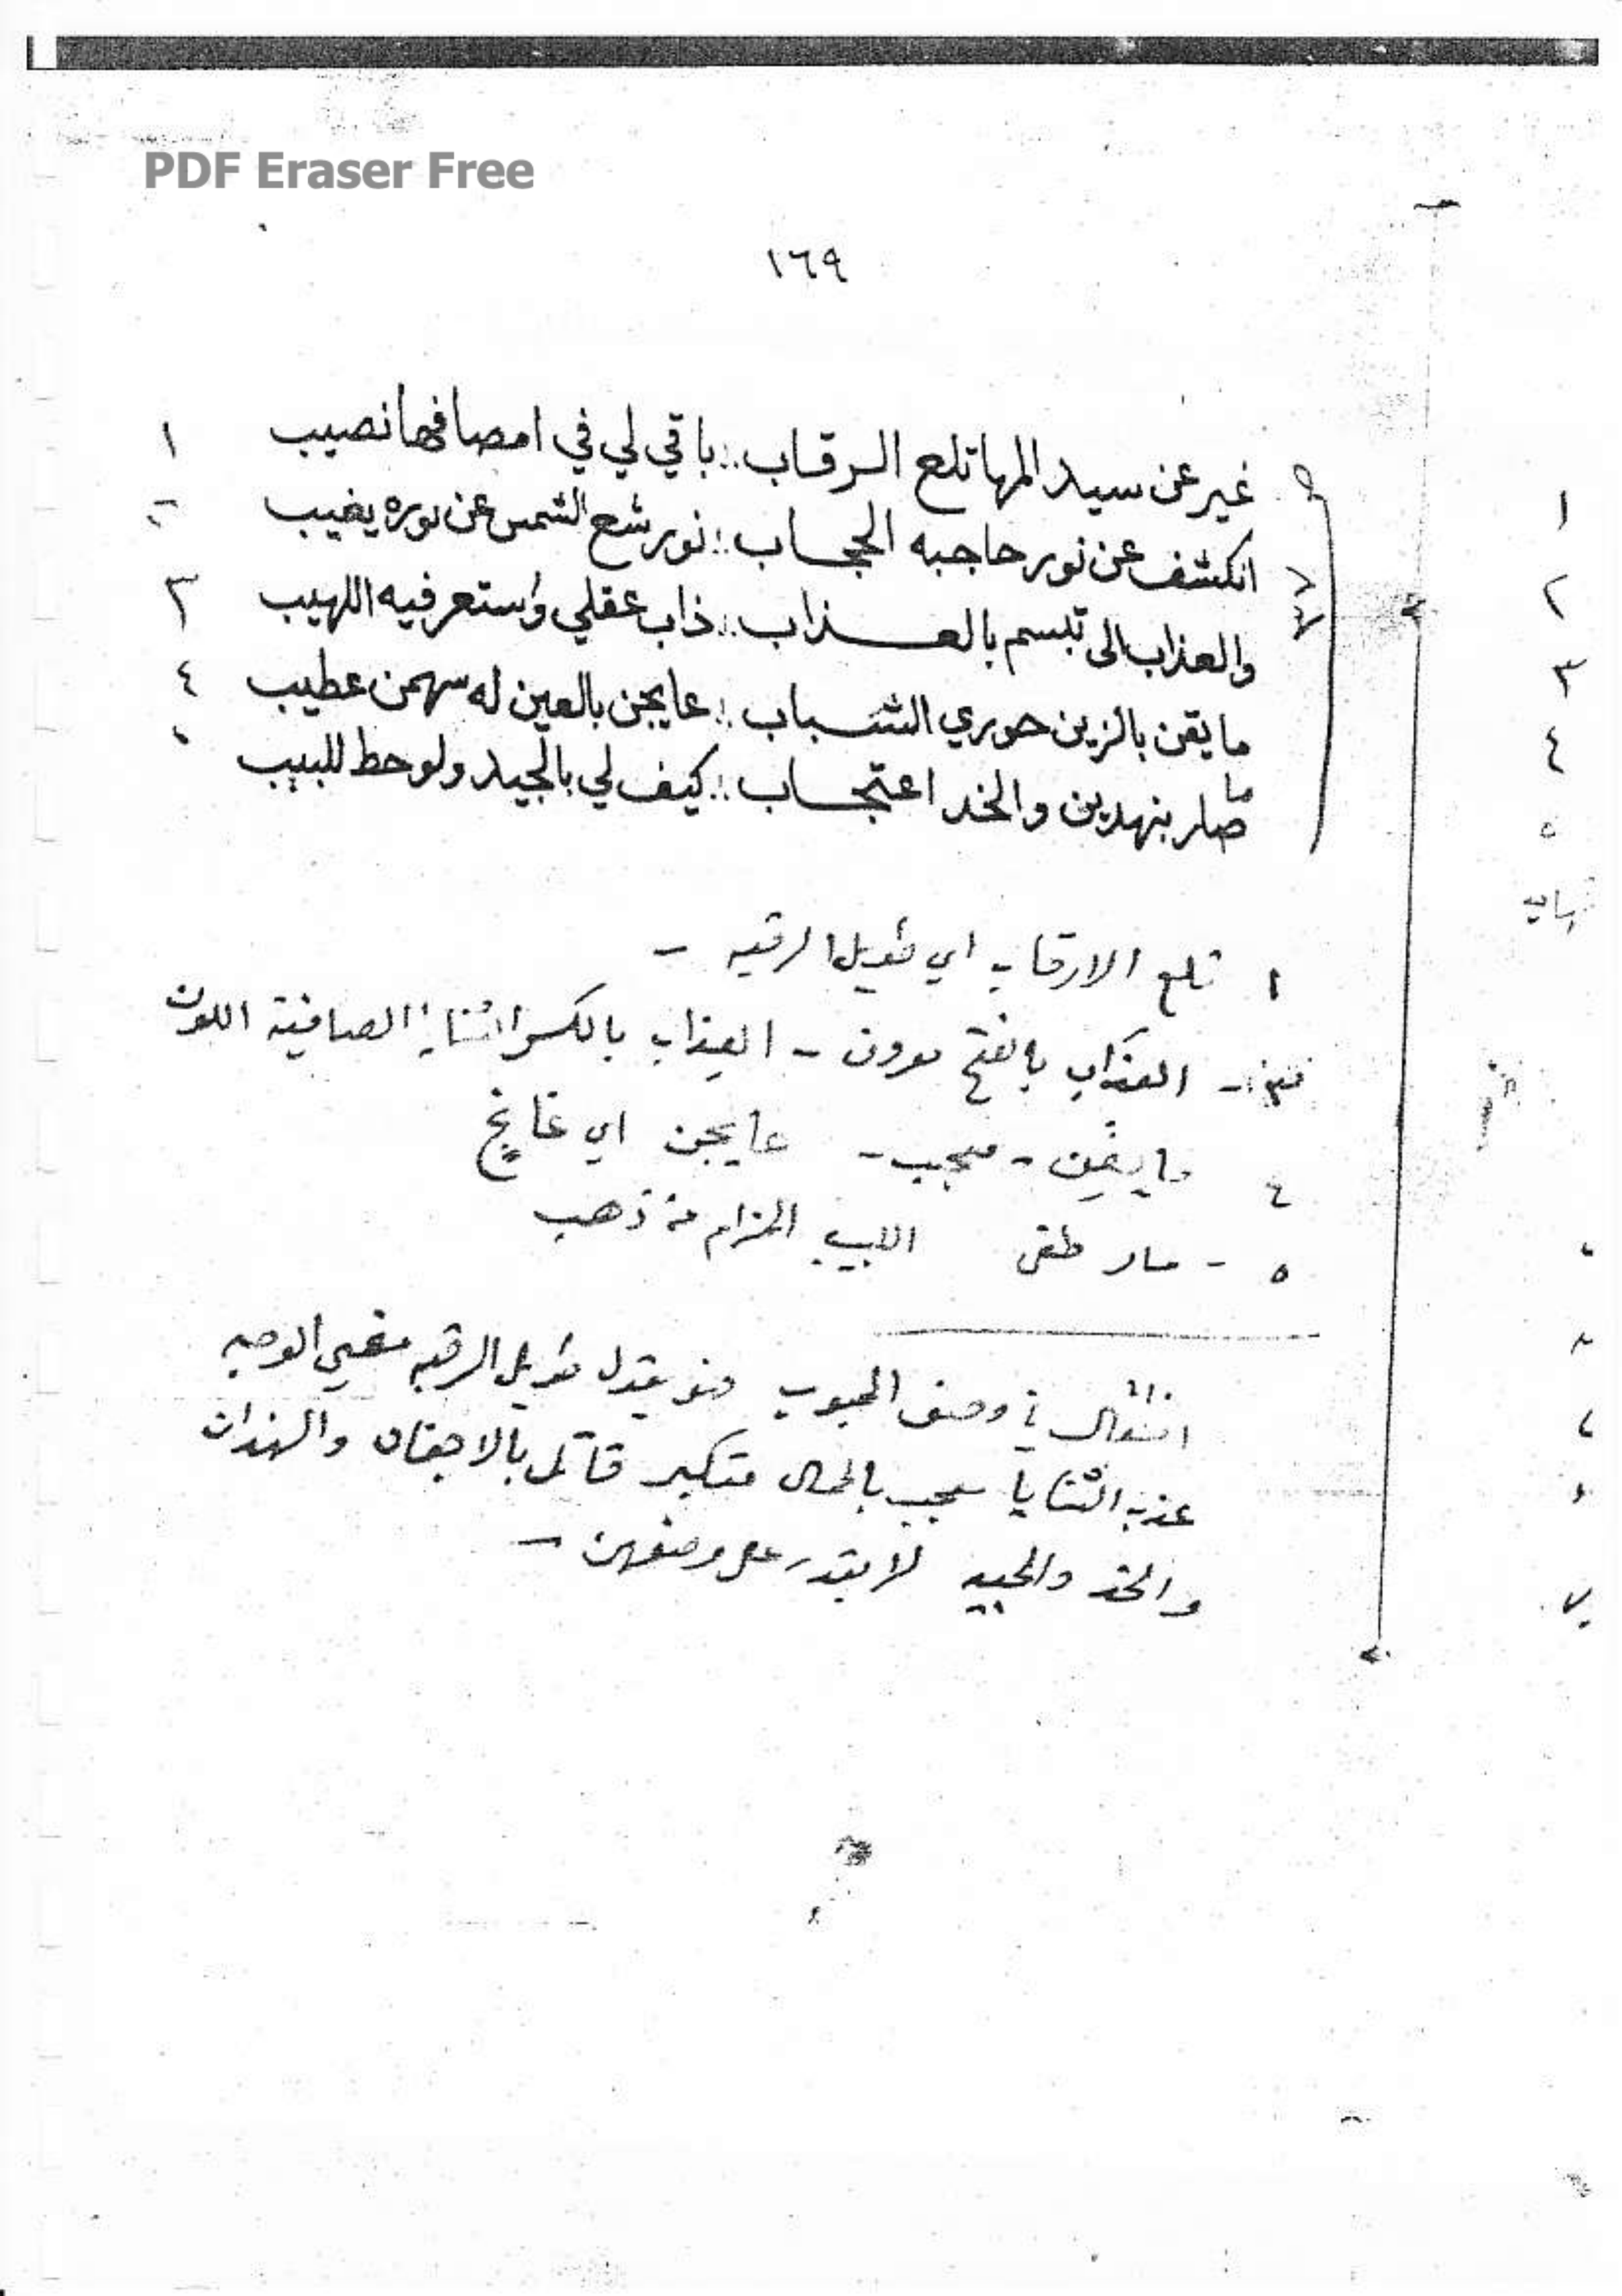 PDF Eraser Free
١٦٩
غير عن سيد المها تلع الرقاب :: باقي لي في امصافها نصيب ١
انكشف عن نور حاجبه الحجاب :: نور شع الشمس عن نوره يغيب
والعذاب الى تبسم بالعذاب :: ذاب عقلي واستعر فيه اللهيب ٣
مايقن بالزين حوري الشباب :: عايجن بالعين له سهمن عطيب ٤
ما صار بنهدين والخد اعتجاب :: كيف لي بالجيد ولو حط للبيب
١ تلع الارقاب اي طويل الرقبه -
العذاب بالفتح معروف - العِذاب بالكسر الثنايا الصافية اللون
٤ مايقن - معجب - عايجن اي غانج
٥ - صار اللبيب الحزام من ذهب
في وصف المحبوب فهو يقول طويل الرقبه مضيي الوجه
عذب الثنايا معجب بالجمال متكبر قاتل بالاجفان والنهدان
والخد والجيد لا يقدر على وصفهن -
١
٢
٣
٤
٥